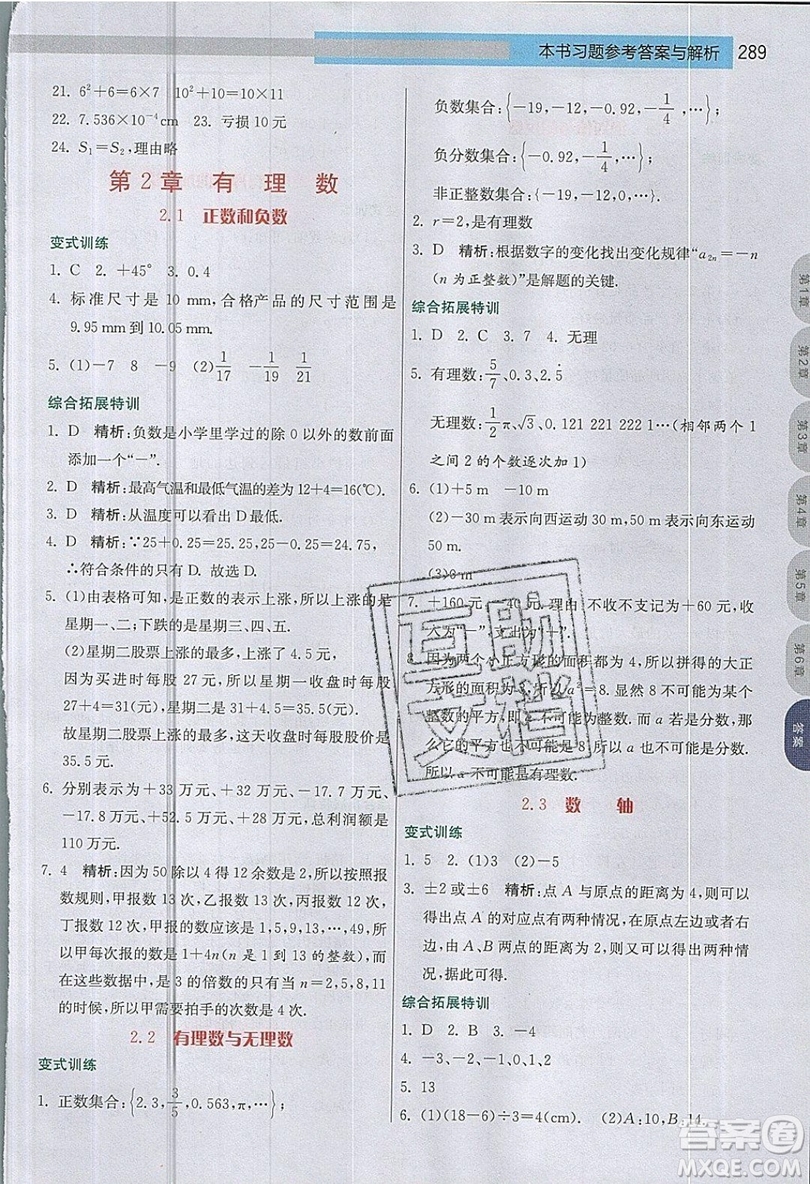 本书习题参考答案与解析 289
21. 6²+6=6×7 10²+10=10×11
22. 7.536×10⁻⁴cm 23. 亏损10元
24. S₁=S₂,理由略
第2章 有理数
2.1 正数和负数
变式训练
1. C 2. +45° 3. 0.4
4. 标准尺寸是10 mm,合格产品的尺寸范围是
9.95 mm到10.05 mm.
5. (1)-7 8 -9 (2)1/17 -1/19 1/21
综合拓展特训
1. D 精析:负数是小学里学过的除0以外的数前面
添加一个“-”.
2. D 精析:最高气温和最低气温的差为12+4=16(℃).
3. D 精析:从温度可以看出D最低.
4. D 精析:∵25+0.25=25.25,25-0.25=24.75,
∴符合条件的只有D. 故选D.
5. (1)由表格可知,是正数的表示上涨,所以上涨的是
星期一、二;下跌的是星期三、四、五.
(2)星期二股票上涨了4.5元,
因为买进时每股27元,所以星期一收盘时每股
27+4=31(元),星期二时31+4.5=35.5(元).
故星期二股票上涨的最多,这天收盘时每股股价
35.5元.
6. 分别表示+33万元、+32万元、-17.7万元、
-17.8万元、+52.5万元、+28万元,总利润额是
110万元.
7. 4 精析:因为50除以4得12余数是2,所以根据报
数规则,甲报数13次,乙报数13次,丙报数12次,
丁报数12次,甲报的数应该是1,5,9,13,…,49,所
以甲每次报的数是1+4n(n是1到13的整数),而
在这些数据中,是3的倍数的只有当n=2,5,8,11
的时候,所以甲需要拍手的次数是4次.
2.2 有理数与无理数
变式训练
1. 正数集合:{2.3,3/5,0.563,π,…};
负数集合:{-19,-12,-0.92,-1/4,…};
负分数集合:{-0.92,-1/4,…};
非正整数集合:{-19,0,-12,…}
2. r=2,是有理数
3. D 精析:根据数字的变化找出变化规律“a₂ₙ=-n
(n为正整数)”是解题的关键.
综合拓展特训
1. D 2. C 3. 7 4. 无理
5. 有理数:5/7、0.3、2.5̇
无理数:1/2π、√3、0.121 221 222 1…(相邻两个1
之间2的个数逐次加1)
6. (1)+5 m -10 m
(2)-30 m表示向西运动30 m,50 m表示向东运动
50 m.
(3)0 m
7. +160元,-40元. 理由:不收不支记为+60元,
收大为“-”,支出为“+”.
8. 因为两个小正方形的面积为4,所以拼得的大正
方形的面积为8,所以a²=8. 显然8不可能为某个
整数的平方,即a不可能为整数. 而a若是分数,那
么它的平方也不可能是8,所以a也不可能为分数.
所以a不可能是有理数.
2.3 数轴
变式训练
1. 5 2. (1)3 (2)-5
3. ±2或±6 精析:点A与原点的距离为4,可以
得出点A的对应点有两种情况,在此两种情况下,
由A、B两点的距离为2,可知B点有四种情况.
综合拓展特训
1. D 2. B 3. -4
4. -3、-2、-1、0、1、2、3
5. 13
6. (1)(18-6)÷3=4(cm). (2)A:10,B:14.
第1章
第2章
第3章
第4章
第5章
第6章
答案
互助
文档
答案圈
MXQE.COM